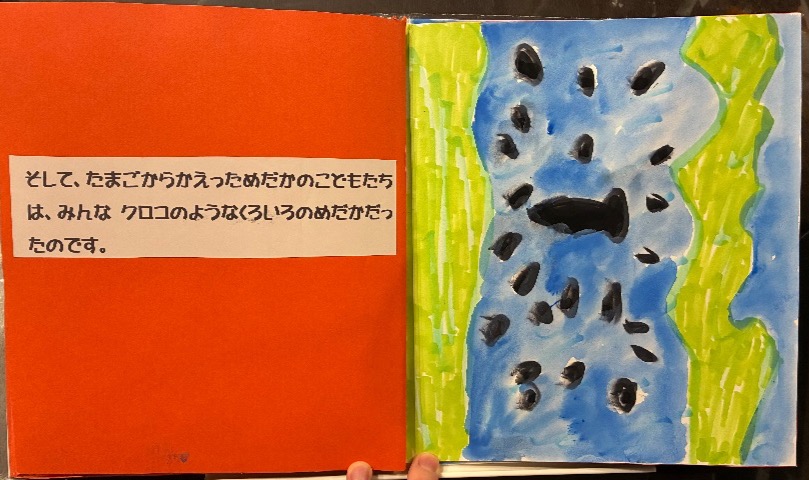 そして、たまごからかえっためだかのこどもたち
は、みんな クロコのようなくろいろのめだかだっ
たのです。